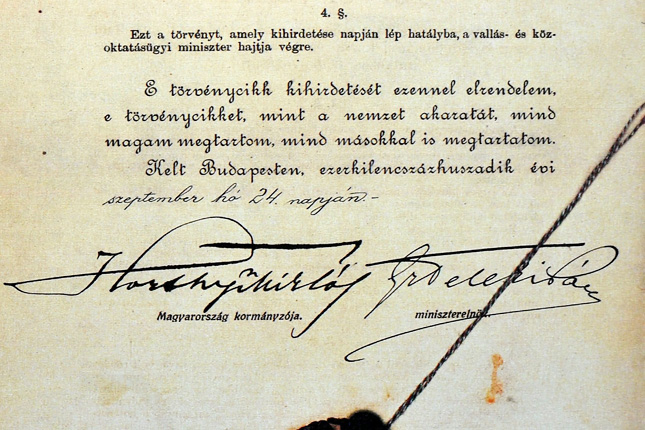 4. §.
Ezt a törvényt, amely kihirdetése napján lép hatályba, a vallás- és köz-
oktatásügyi miniszter hajtja végre.
E törvénycikk kihirdetését ezennel elrendelem,
e törvénycikket, mint a nemzet akaratát, mind
magam megtartom, mind másokkal is megtartatom.
Kelt Budapesten, ezerkilencszázhuszadik évi
szeptember hó 24. napján.-
Horthy Miklós
Magyarország kormányzója.
miniszterelnök.